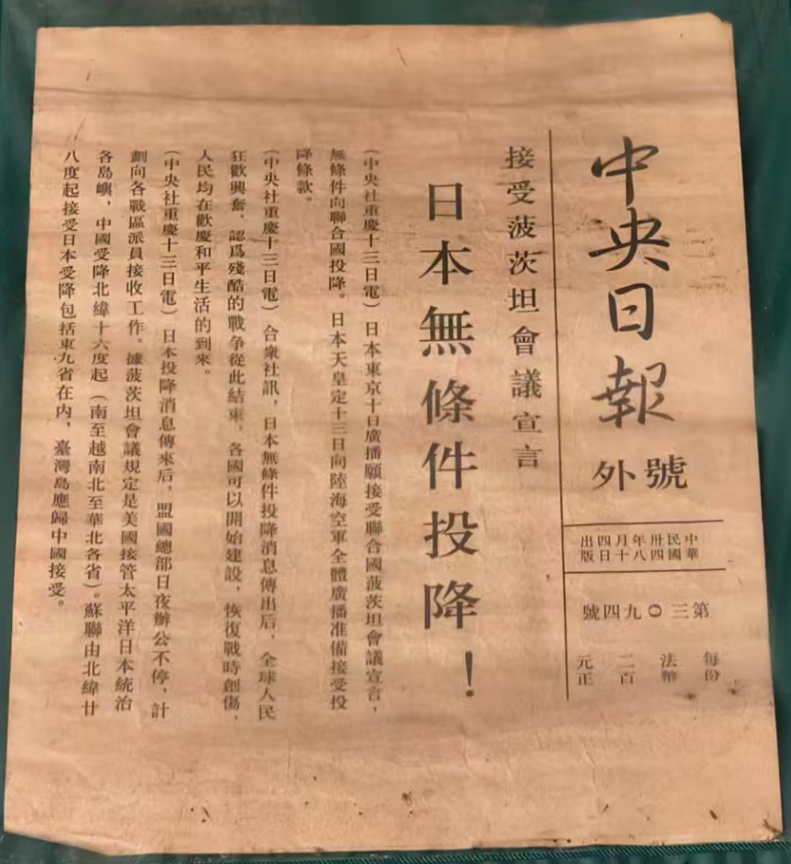 中央日報
號外
中華民國卅四年八月十四日出版
第三〇九四號
每份法幣二百元正
接受菠茨坦會議宣言
日本無條件投降！
（中央社重慶十三日電）日本東京十日廣播願接受聯合國菠茨坦會議宣言，
無條件向聯合國投降。日本天皇定十三日向陸海空軍全體廣播准備接受投
降條款。
（中央社重慶十三日電）合衆社訊，日本無條件投降消息傳出后，全球人民
狂歡興奮，認爲殘酷的戰争從此結束，各國可以開始建設，恢復戰時創傷，
人民均在歡慶和平生活的到來。
（中央社重慶十三日電）日本投降消息傳來后，盟國總部日夜辦公不停，計
劃向各戰區派員接收工作。據菠茨坦會議規定是美國接管太平洋日本統治
各島嶼，中國受降北緯十六度起（南至越南北至華北各省）。蘇聯由北緯廿
八度起接受日本受降包括東九省在内，臺灣島應歸中國接受。